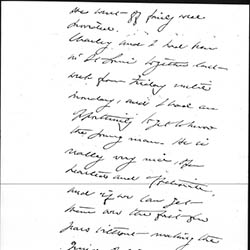 was sort of fairly well
Charley and I had him
in St Louis together last
week from Friday until
Monday, and I had an
opportunity to get to know
the young man. He is
really very nice, 
fearless and
and if we can get
them over the first few
years without making the